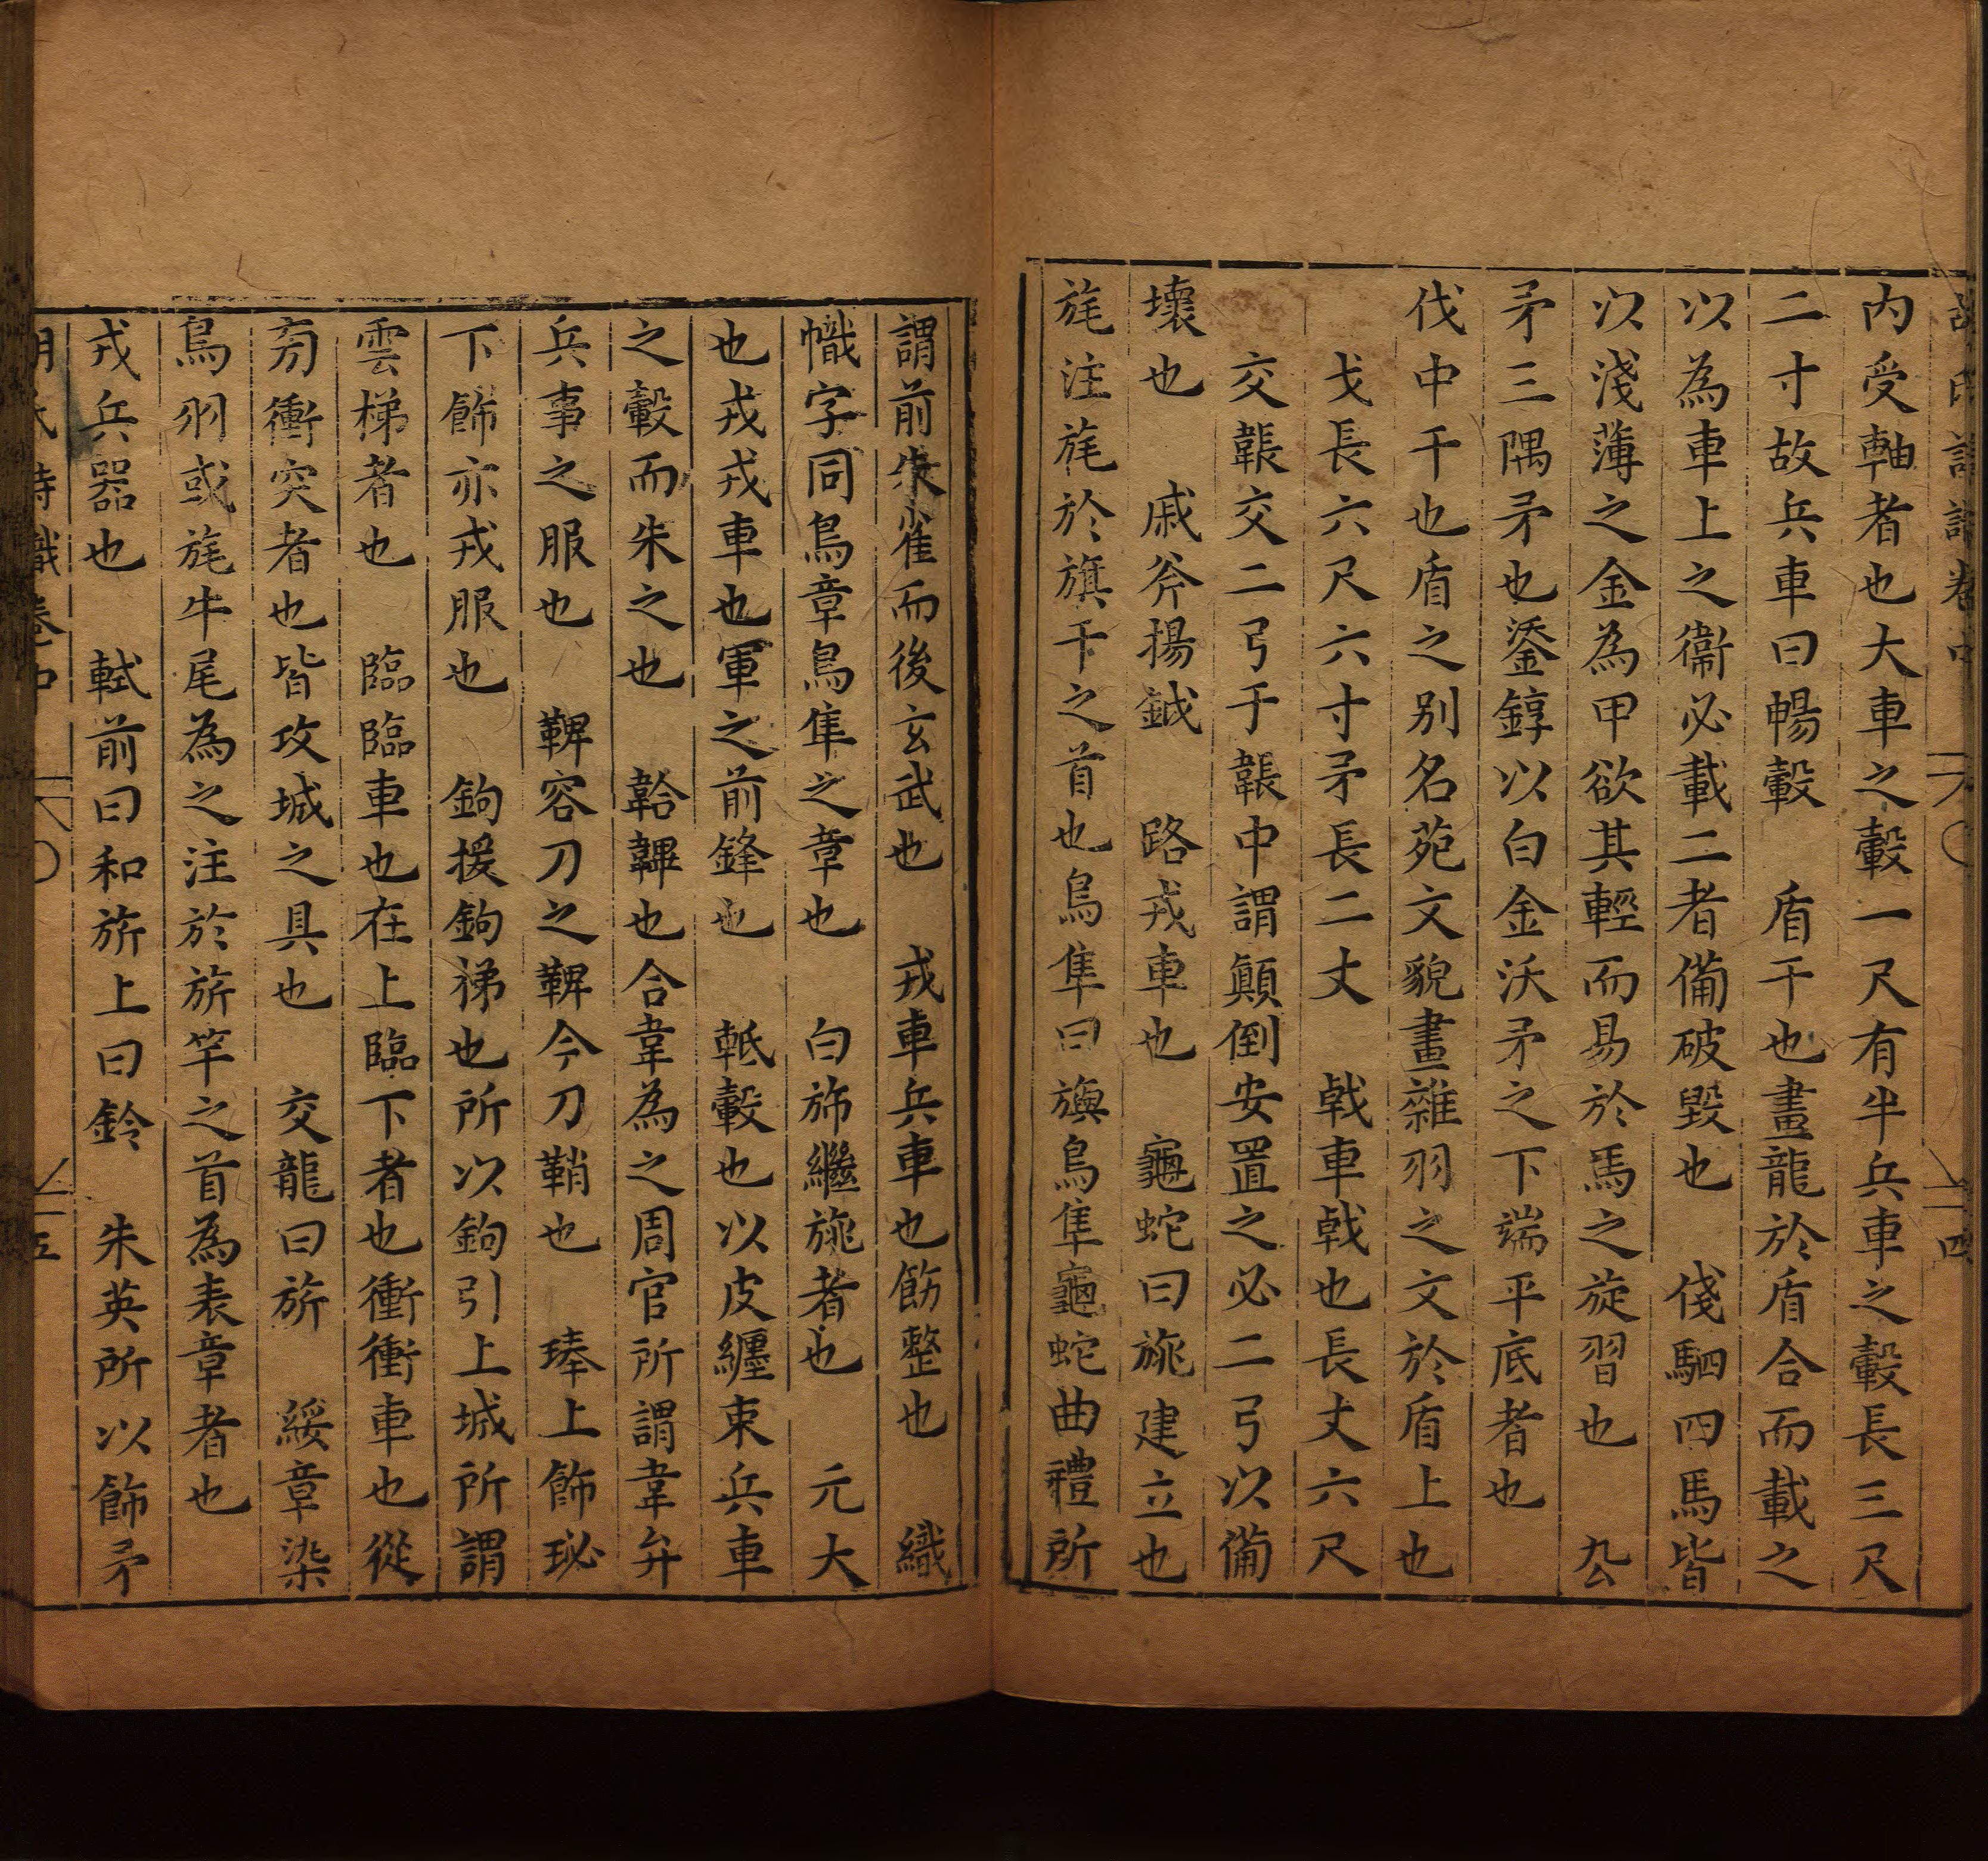 內受軸者也大車之轂一尺有半兵車之轂長三尺
二寸故兵車曰暢轂　盾干也畫龍於盾合而載之
以為車上之衞必載二者備破毀也　俴駟四馬皆
以淺薄之金為甲欲其輕而易於馬之旋習也　厹
矛三隅矛也鋈錞以白金沃矛之下端平底者也
伐中干也盾之别名苑文貌畫雜羽之文於盾上也
戈長六尺六寸矛長二丈　戟車戟也長丈六尺
交韔交二弓于韔中謂顛倒安置之必二弓以備
壞也　戚斧揚鉞　路戎車也　龜蛇曰旐建立也
旄注旄於旗干之首也鳥隼曰旟鳥隼龜蛇曲禮所
謂前朱雀而後玄武也　戎車兵車也飭整也　織
幟字同鳥章鳥隼之章也　白旆繼旐者也　元大
也戎戎車也軍之前鋒也　軝轂也以皮纏束兵車
之轂而朱之也　韐韠也合韋為之周官所謂韋弁
兵事之服也　鞞容刀之鞞今刀鞘也　琫上飾珌
下飾亦戎服也　鉤援鉤梯也所以鉤引上城所謂
雲梯者也　臨臨車也在上臨下者也衝衝車也從
旁衝突者也皆攻城之具也　交龍曰旂　綏章染
鳥羽或旄牛尾為之注於旂竿之首為表章者也
戎兵器也　軾前曰和旂上曰鈴　朱英所以飾矛